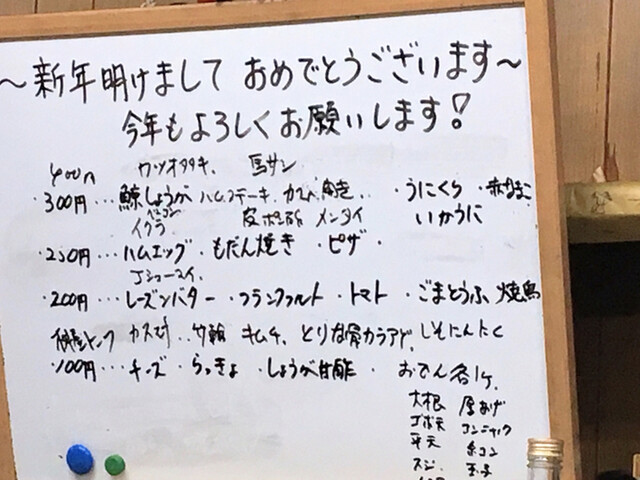 ～新年明けまして おめでとうございます～
今年もよろしくお願いします！
400円 カツオタタキ. 馬サシ
・300円…鯨しょうが ハムステーキ. ・うにくらげ ・赤なまこ
ベーコン
イクラ 皮ポン酢 メンタイ いかうに
・250円…ハムエッグ ・もだん焼き ・ピザ ・
Jシューマイ.
・200円…レーズンバター ・フランクフルト ・トマト ・ごまとうふ 焼鳥
竹輪 キムチ. とりな骨カラアゲ. しそにんにく
・100円…チーズ ・らっきょ ・しょうが甘酢 ・おでん各1ケ.
大根 厚あげ
ゴボ天 コンニャク
平天 糸コン
スジ. 玉子